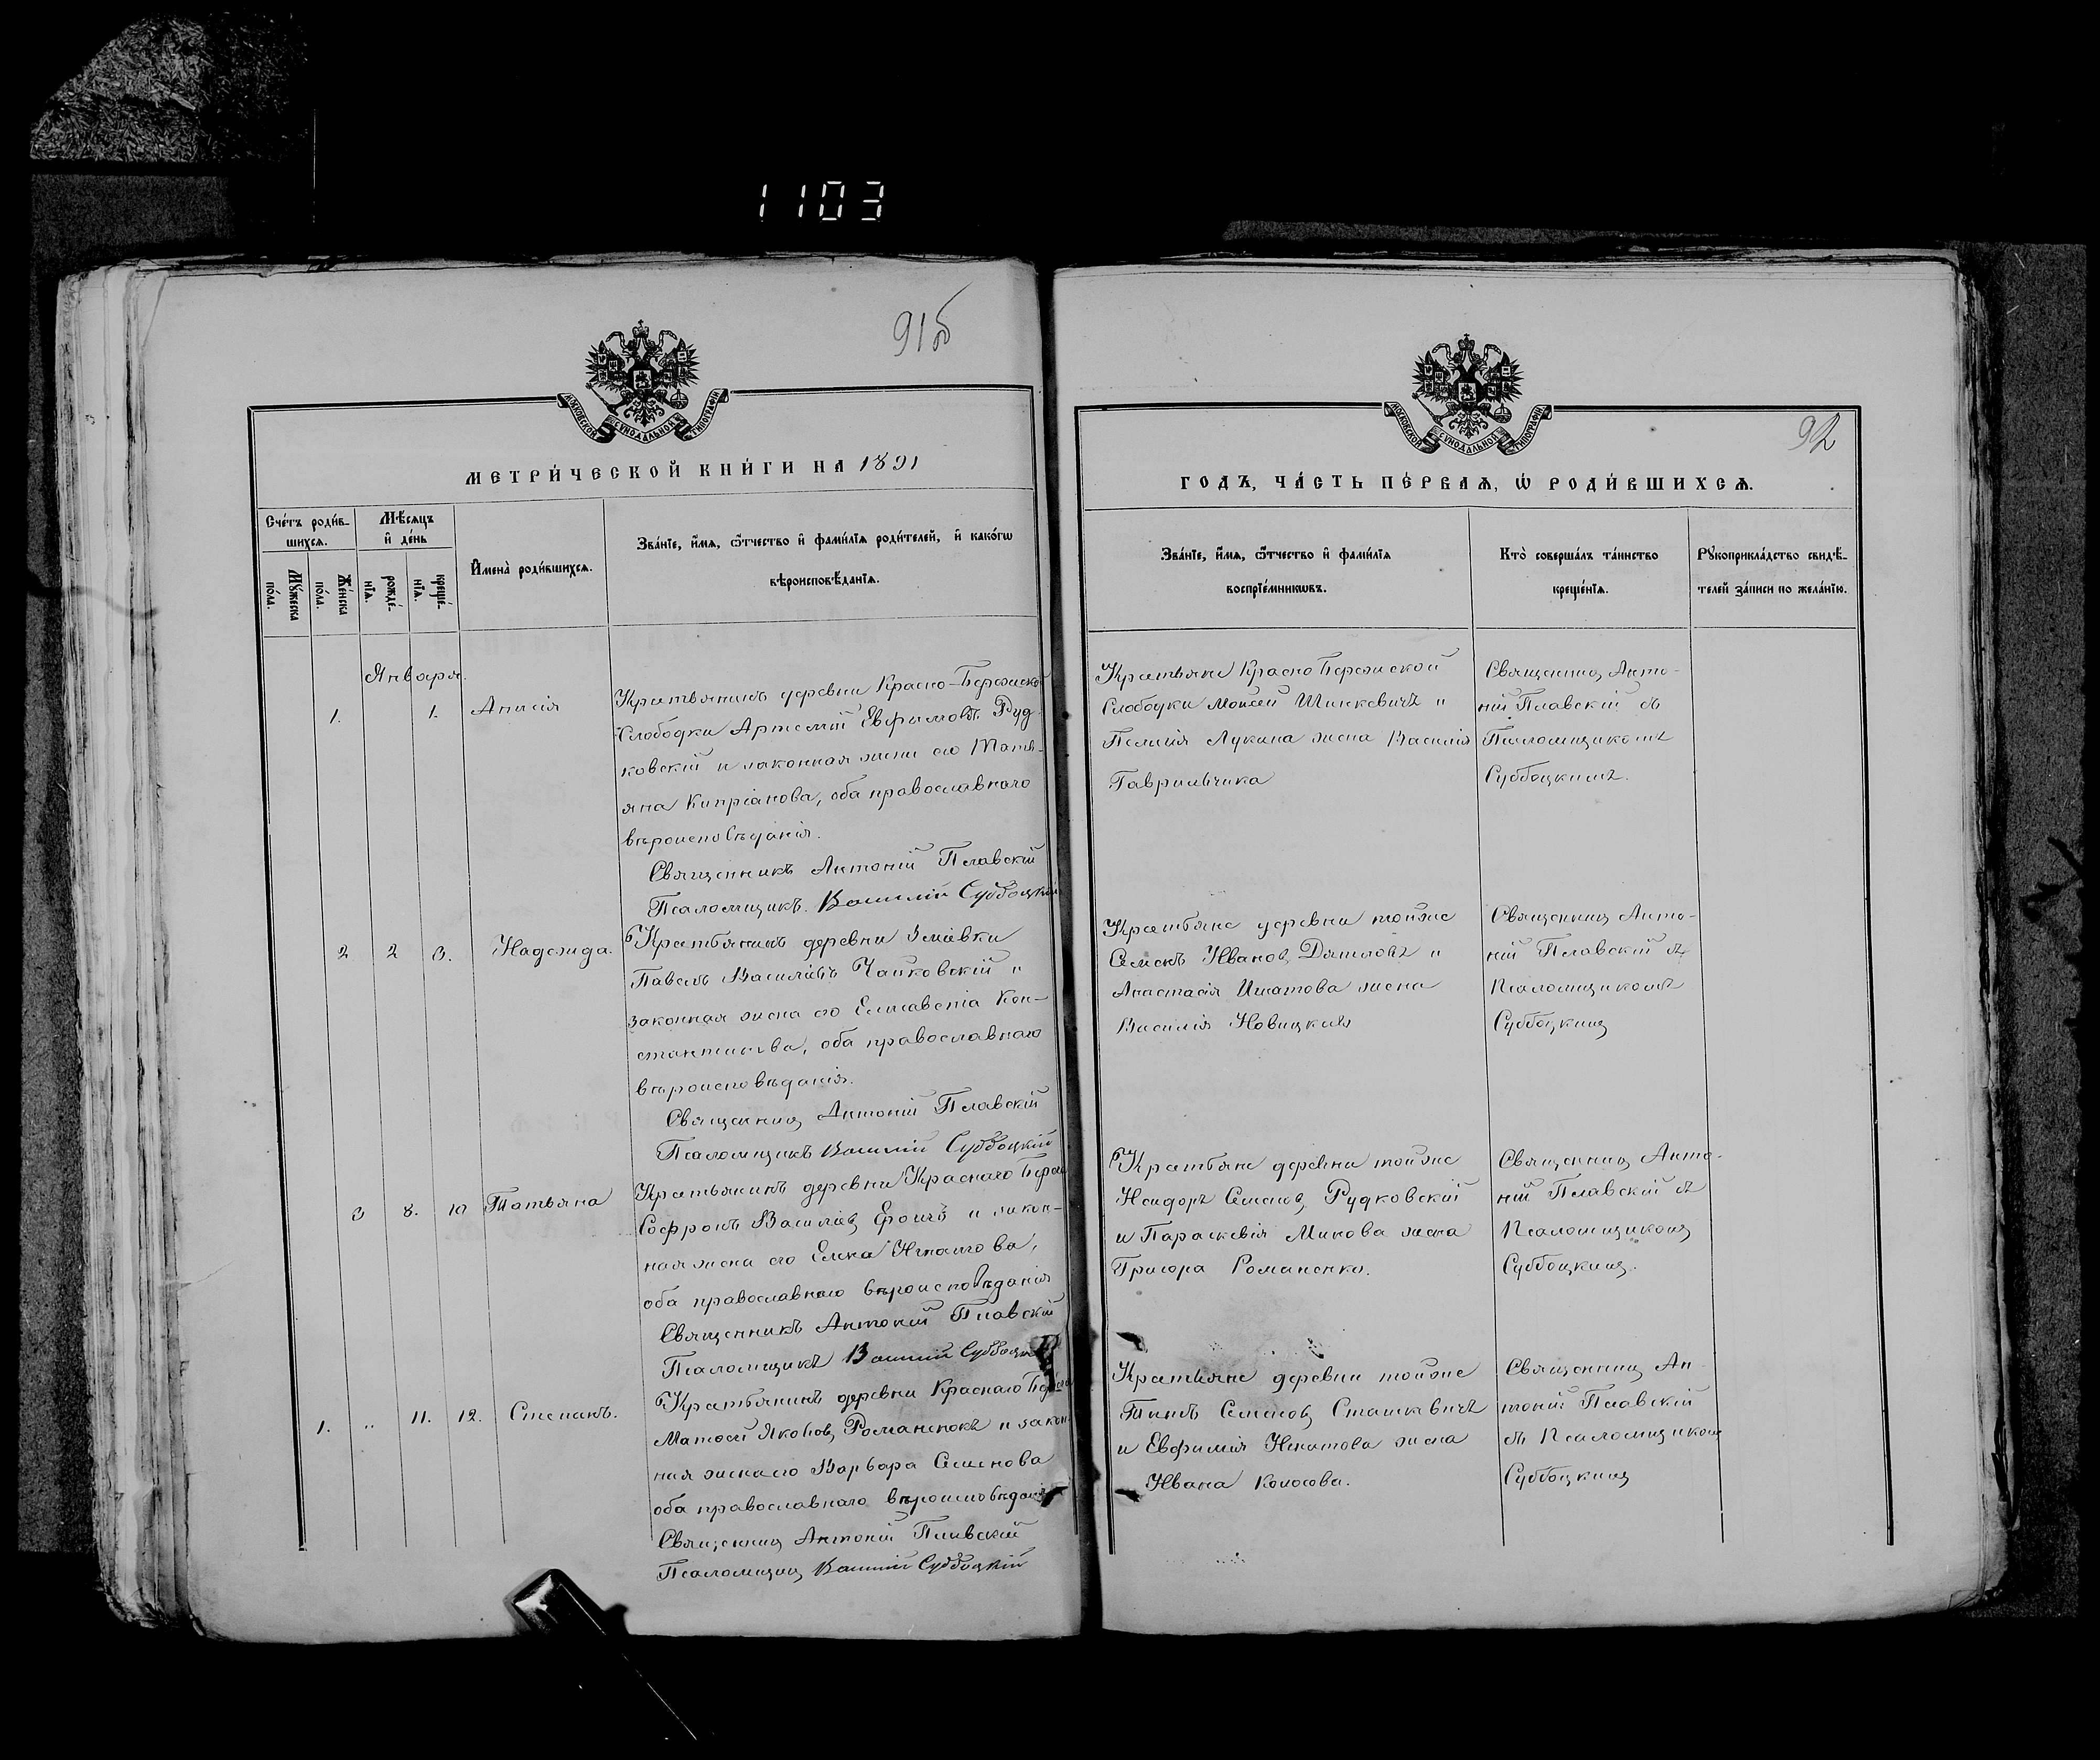 1103
91б
МОСКОВСКОЙ СѴНОДАЛЬНОЙ ТИПОГРАФІИ
МЕТРИ́ЧЕСКОЙ КНИ́ГИ НА 1891
Сче́тъ роди́в-
шихсѧ.
Мѣ́сѧцъ
и҆ де́нь
Мꙋ́жеска
по́ла.
Же́нска
по́ла.
рожде́-
нїѧ.
креще́-
нїѧ.
И҆мена̀ роди́вшихсѧ.
Зва́нїе, и҆́мѧ, ѻ҆́тчество и҆ фами́лїѧ роди́телей, и҆ како́гѡ
вѣроисповѣ́данїѧ.
Января.
1. 1. Анисія
Крестьянинъ деревни Красно-Бережской
Слободки Артемій Евфимовъ Руд-
ковскій и законная жена его Тать-
яна Кипріанова, оба православнаго
вѣроисповѣданія.
Священникъ Антоній Плавскій
Псаломщикъ. Василій Субботскій
2 2 3. Надежда.
Крестьянинъ деревни Зміевки
Павелъ Васильевъ Чайковскій и
законная жена его Елисавета Кон-
стантинова, оба православнаго
вѣроисповѣданія.
Священникъ Антоній Плавскій
Псаломщикъ Василій Субботскій
3 8. 10 Татьяна
Крестьянинъ деревни Краснаго Берега
Софронъ Васильевъ и закон-
ная жена его Елена Игнатова,
оба православнаго вѣроисповѣданія
Священникъ Антоній Плавскій
Псаломщикъ Василій Субботскій
1. „ 11. 12. Степанъ.
Крестьянинъ деревни Краснаго Берега
Матвей Яковов Романенокъ и закон-
ная жена его Варвара Семенова
оба православнаго вѣроисповѣданія
Священникъ Антоній Плавскій
Псаломщикъ Василій Субботскій
92
МОСКОВСКОЙ СѴНОДАЛЬНОЙ ТИПОГРАФІИ
ГОДЪ, ЧА́СТЬ ПЕ́РВАѦ, Ѡ҆ РОДИ́ВШИХСѦ.
Зва́нїе, и҆́мѧ, ѻ҆́тчество и҆ фами́лїѧ
воспрїе́мникѡвъ.
Кто̀ соверша́лъ та́инство
креще́нїѧ.
Рꙋкоприкла́дство свидѣ́-
телей за́писи по жела́нїю.
Крестьяне Красно Бережской
Слободки Моисей Шинкевичъ и
Пелагія Лукина жена Василія
Гаврильчика
Священник Анто-
ній Плавскій съ
Псаломщикомъ
Субботскимъ.
Крестьяне деревни тойже
Семенъ Иванов Дятловъ и
Анастасія Игнатова жена
Василія Новицкаго
Священник Анто-
ній Плавскій съ
Псаломщикомъ
Субботским
Крестьяне деревни тойже
Исидоръ Семенов Рудковскій
и Параскевія Минова жена
Григора Романенко.
Священник Анто-
ній Плавскій съ
Псаломщиком
Субботским.
Крестьяне деревни тойже
Титъ Семенов Сташкевичъ
и Евфимія Игнатова жена
Ивана Колосова.
Священник Ан-
тоній Плавскій
съ Псаломщиком
Субботским